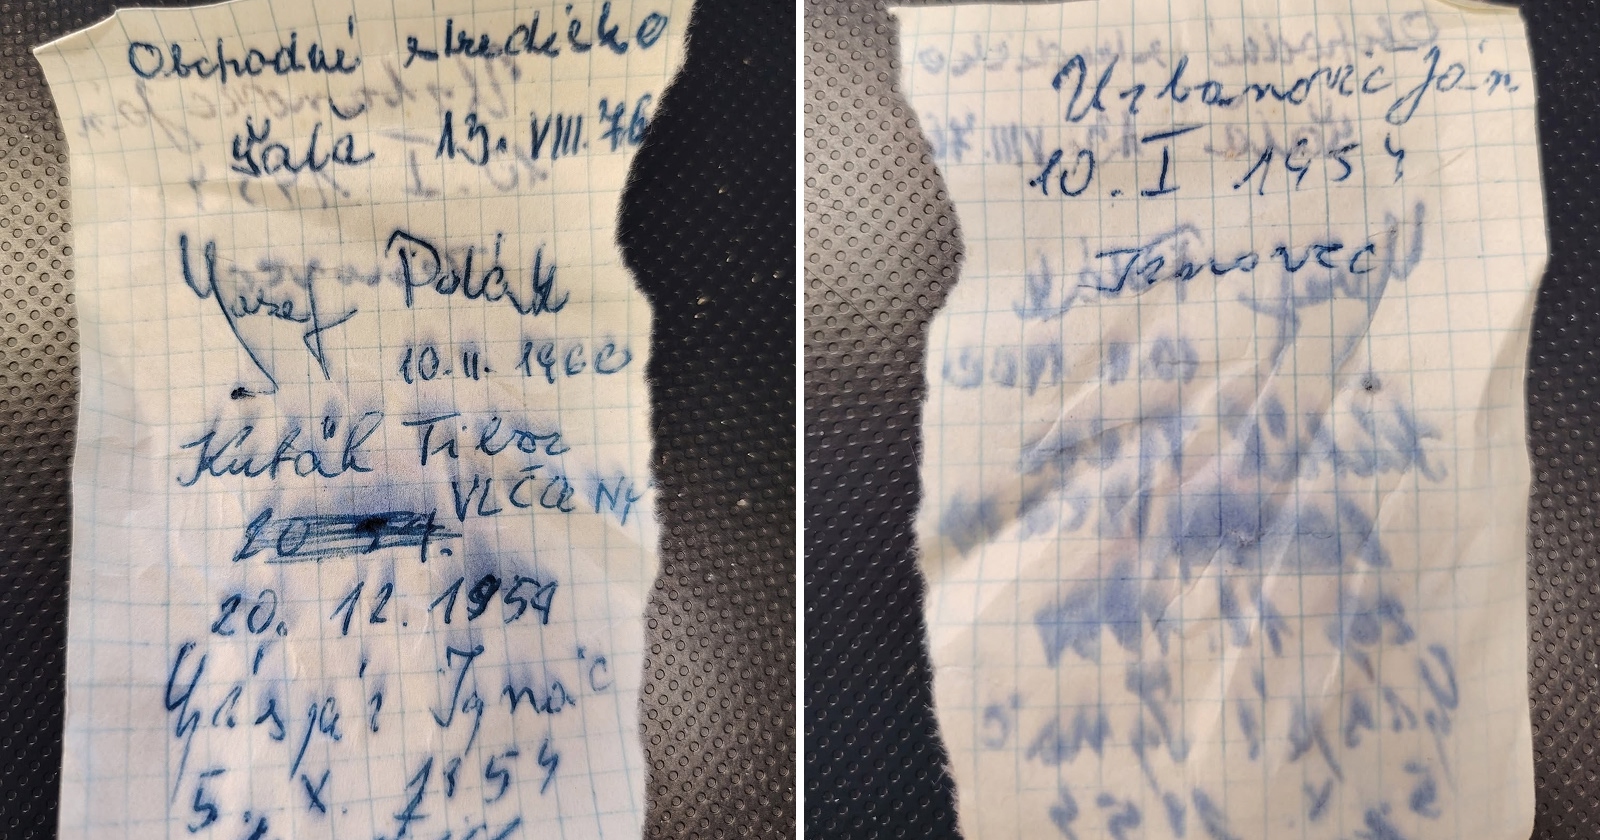 Obchodné stredisko
Šaľa 13. VIII. 76
Jozef Polák
10. II. 1960
Kuták Tibor
VLČANY
20. 12. 1959
Gáspár Ignác
5. X. 1954
Urbanovič Ján
10. I 1954
Trnovec